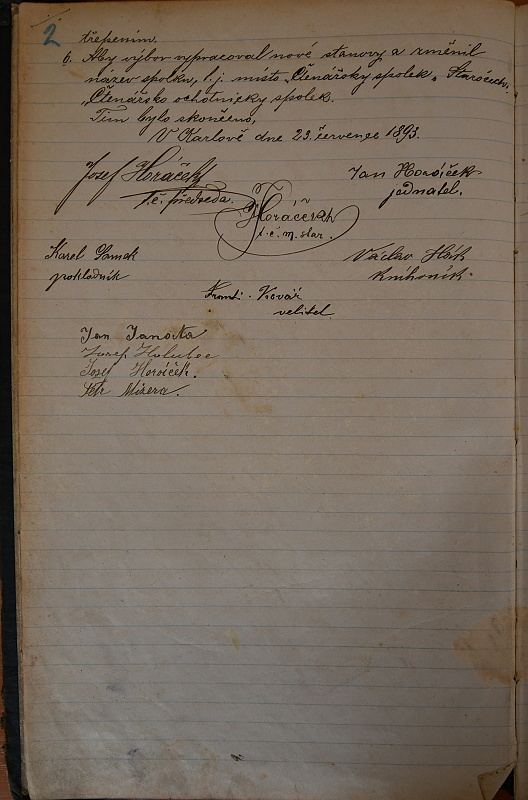 2
třepením.
6. Aby výbor vypracoval nové stanovy a změnil
název spolku, t. j. místo „Čtenářský spolek"
„Čtenářsko ochotnický spolek.
Tím bylo skončeno,
V Karlově dne 23. července 1893.
Josef Horáček
t. č. předseda.
Jan Horáček
jednatel.
Horáček
t. č. m. star.
Karel Samek
pokladník
Václav Hák
knihovník.
Frant. Kovář
velitel
Jan Janata
Josef Holubec
Josef Horáček.
Petr Mizera.